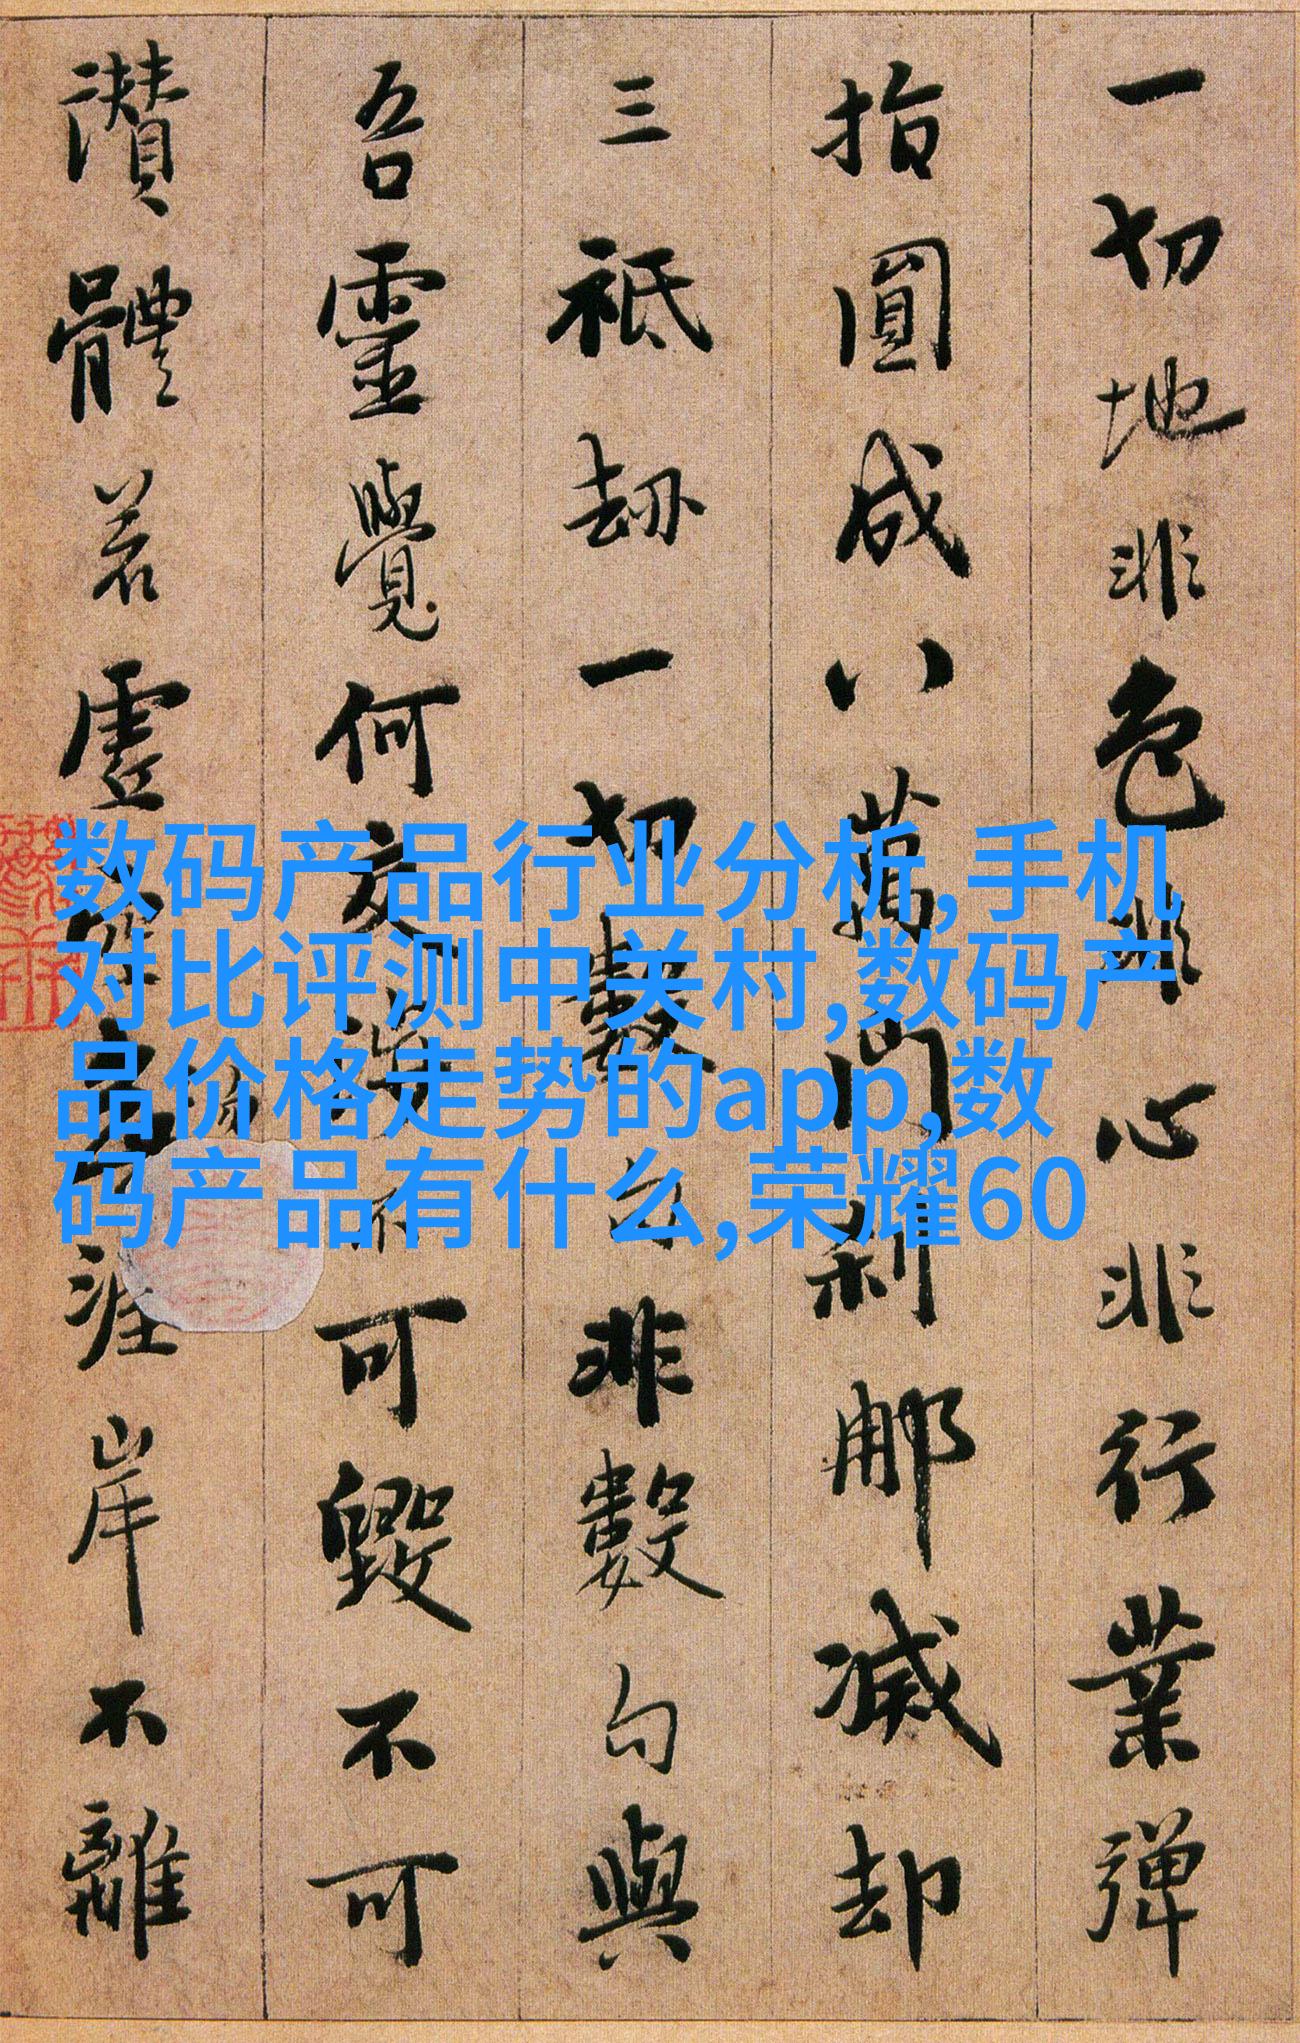 一切地非色非心非行業彈
指圓成八萬門刹那滅却
三祇劫一切數句非數句與
吾靈覺何交涉不可毀不可
讚體若虛空勿涯岸不離
数码产品行业分析,手机
对比评测中关村,数码产
品价格走势的app,数
码产品有什么,荣耀60